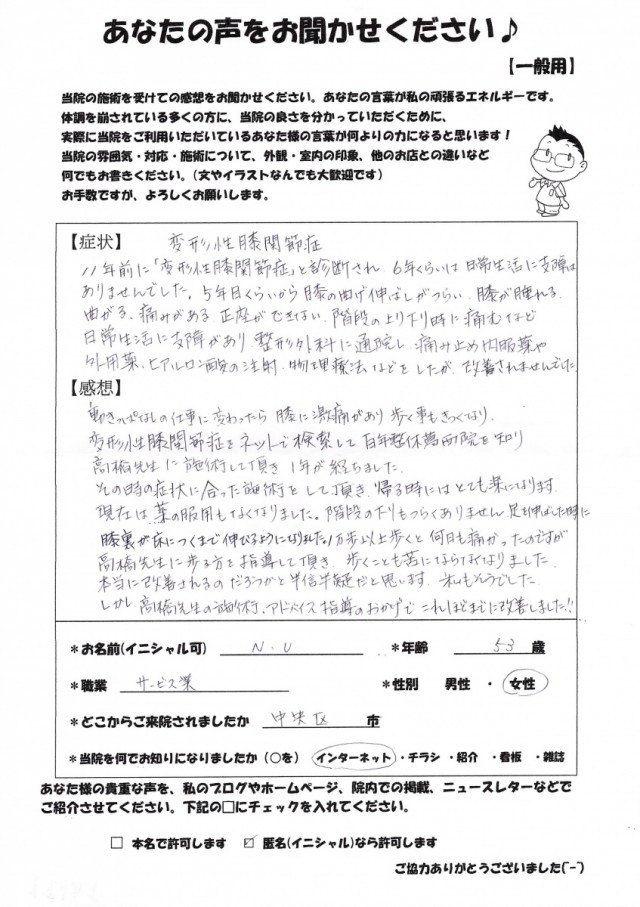 あなたの声をお聞かせください♪
【一般用】
当院の施術を受けての感想をお聞かせください。あなたの言葉が私の頑張るエネルギーです。
体調を崩されている多くの方に、当院の良さを分かっていただくために、
実際に当院をご利用いただいているあなた様の言葉が何よりの力になると思います！
当院の雰囲気・対応・施術について、外観・室内の印象、他のお店との違いなど
何でもお書きください。（文やイラストなんでも大歓迎です）
お手数ですが、よろしくお願いします。
【症状】 変形性膝関節症
11年前に「変形性膝関節症」と診断され 6年くらいは日常生活に支障は
ありませんでした。5年目くらいから膝の曲げ伸ばしがつらい、膝が腫れる、
曲がる、痛みがある 正座ができない 階段の上り下り時に痛むなど
日常生活に支障があり、整形外科に通院し、痛み止め内服薬や
外用薬、ヒアルロン酸の注射、物理療法などをしたが、改善されませんでした
【感想】
動きっぱなしの仕事に変わったら 膝に激痛があり歩く事もきつくなり、
変形性膝関節症をネットで検索して百年整体 院を知り
高橋先生に施術して頂き 1年が経ちました。
その時の症状に合った施術をして頂き、帰る時にはとても楽になります。
現在は薬の服用もなくなりました。階段の下りもつらくありません 足を伸ばした時に
膝裏が床につくまで伸びるようになりました 1万歩以上歩くと何日も痛かったのですが
高橋先生に歩き方を指導して頂き、歩くことも苦にならなくなりました。
本当に改善されるのだろうかと半信半疑だと思います。私もそうでした
しかし高橋先生の施術、アドバイス指導のおかげでこれほどまでに改善しました!!
＊お名前(イニシャル可) N.U ＊年齢 53 歳
＊職業 サービス業 ＊性別 男性 ・ 女性
＊どこからご来院されましたか 中央区 市
＊当院を何でお知りになりましたか（○を） インターネット ・チラシ ・紹介 ・看板 ・雑誌
あなた様の貴重な声を、私のブログやホームページ、院内での掲載、ニュースレターなどで
ご紹介させてください。下記の□にチェックを入れてください。
□ 本名で許可します ☑ 匿名(イニシャル)なら許可します
ご協力ありがとうございました(^-^)